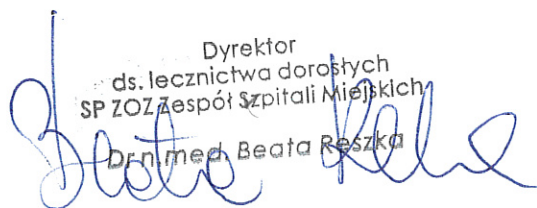 Dyrektor
ds. lecznictwa dorosłych
SP ZOZ Zespół Szpitali Miejskich
Dr n. med. Beata Reszka